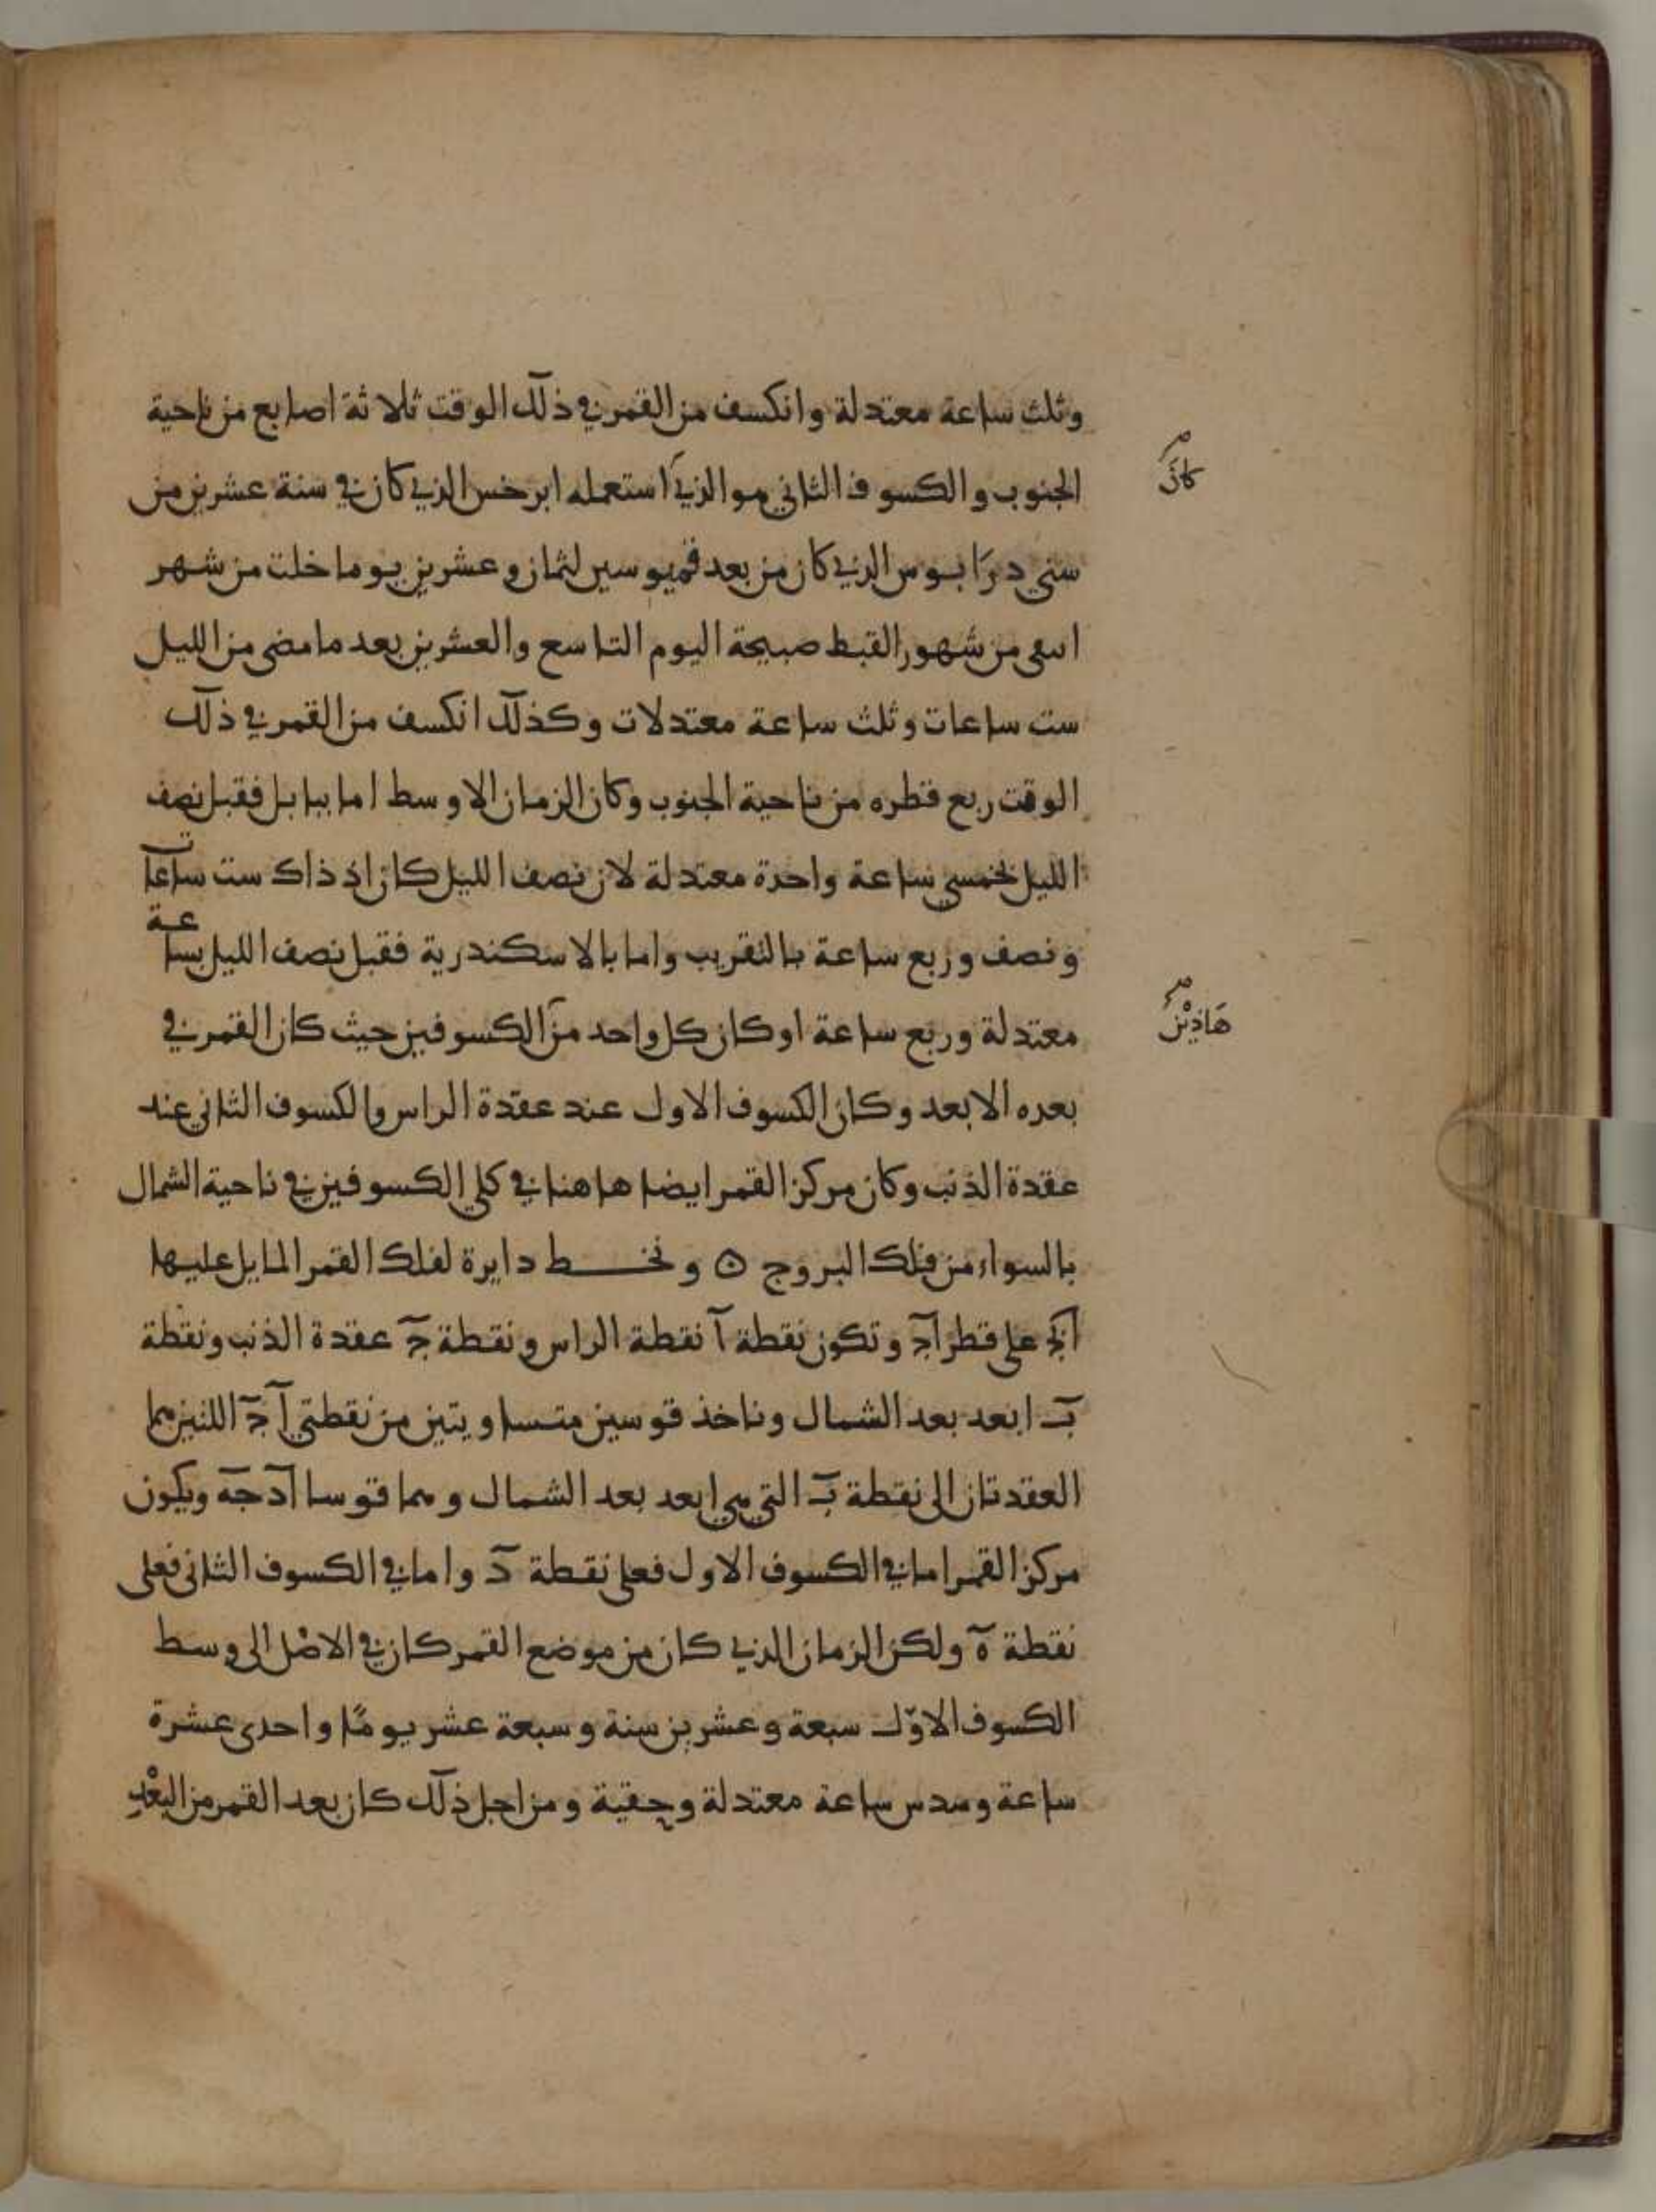 وثلث ساعة معتدلة وانكسف من القمر في ذلك الوقت ثلاثة اصابع من ناحية
الجنوب والكسوف الثاني هو الذي استعمله ابرخس الذي كان في سنة عشرين من
كان
سني درايوس الذي كان من بعد قمبوسيس لثمان وعشرين يوما خلت من شهر
ابيفي من شهور القبط صبيحة اليوم التاسع والعشرين بعد ما مضى من الليل
ست ساعات وثلث ساعة معتدلات وكذلك انكسف من القمر في ذلك
الوقت ربع قطره من ناحية الجنوب وكان الزمان الاوسط اما ببابل فقبل نصف
الليل بخمسي ساعة واحدة معتدلة لان نصف الليل كان اذ ذاك ست ساعات
ونصف وربع ساعة بالتقريب واما بالاسكندرية فقبل نصف الليل بساعة
معتدلة وربع ساعة اوكان كل واحد من الكسوفين حيث كان القمر في
هاذين
بعده الابعد وكان الكسوف الاول عند عقدة الراس والكسوف الثاني عند
عقدة الذنب وكان مركز القمر ايضا هاهنا في كلي الكسوفين في ناحية الشمال
بالسواء من فلك البروج ۞ ونخط دايرة لفلك القمر المايل عليها
ابج على قطر اج وتكون نقطة ا نقطة الراس ونقطة ج عقدة الذنب ونقطة
ب ابعد بعد الشمال وناخذ قوسين متساويتين من نقطتي ا ج اللتين هما
العقدتان الى نقطة ب التي هي ابعد بعد الشمال وهما قوسا اد جه ويكون
مركز القمر اما في الكسوف الاول فعلى نقطة د واما في الكسوف الثاني فعلى
نقطة ه ولكن الزمان الذي كان من موضع القمر كان في الاصل الى وسط
الكسوف الاول سبعة وعشرين سنة وسبعة عشر يوما واحدى عشرة
ساعة وسدس ساعة معتدلة وحقية ومن اجل ذلك كان بعد القمر من البعد